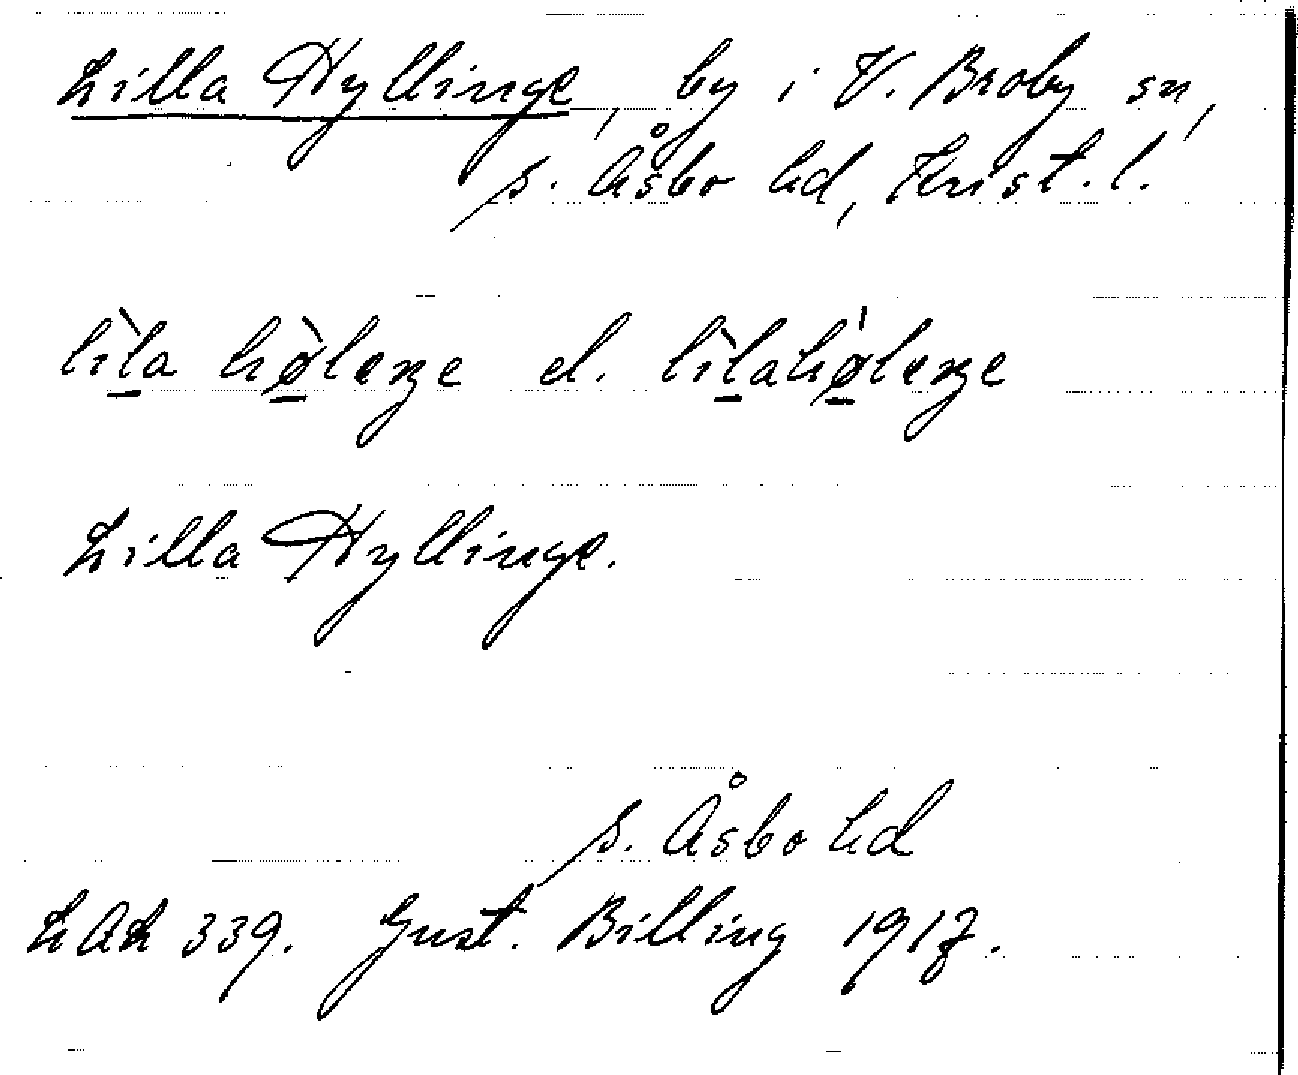 Lilla Hyllinge, by i V. Broby sn,
S. Åsbo hd, Krist. l.
lìla hø̀leŋe el. lìlahø̍leŋe
Lilla Hyllinge.
S. Åsbo hd
LAL 339. Gust. Billing 1917.